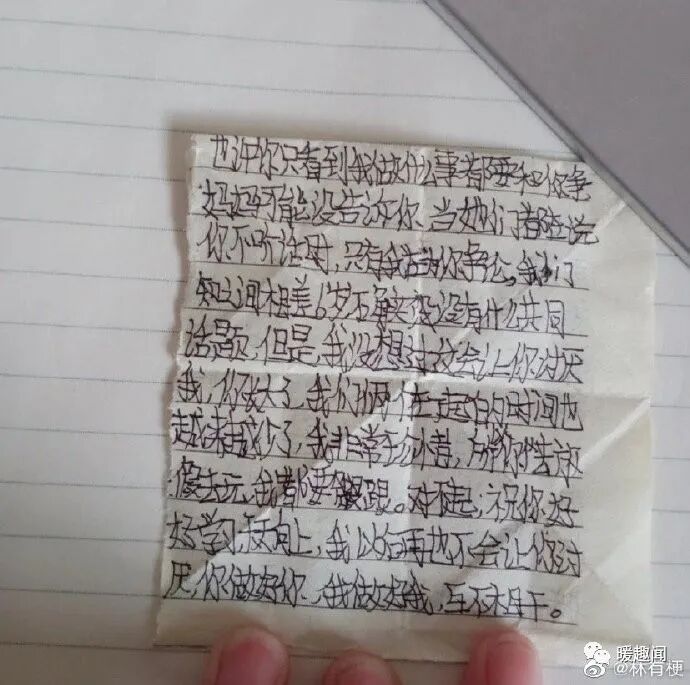 也许你只看到我做什么事都要和你争
妈妈可能没告诉你,当她们都在说
你不听话时,只有我在为你争论。我们
之间相差6岁
没有什么共同
话题,但是,我没想过这会让你讨厌
我,你长大了,我们俩在一起的时间也
越来越少了,我非常珍惜,所以你
假去玩,我都要跟。对不起,祝你好
好学习,天天向上,我以后再也不会让你讨
厌,你做好你,我做好我,互不相干。
暖趣闻
@林有梗